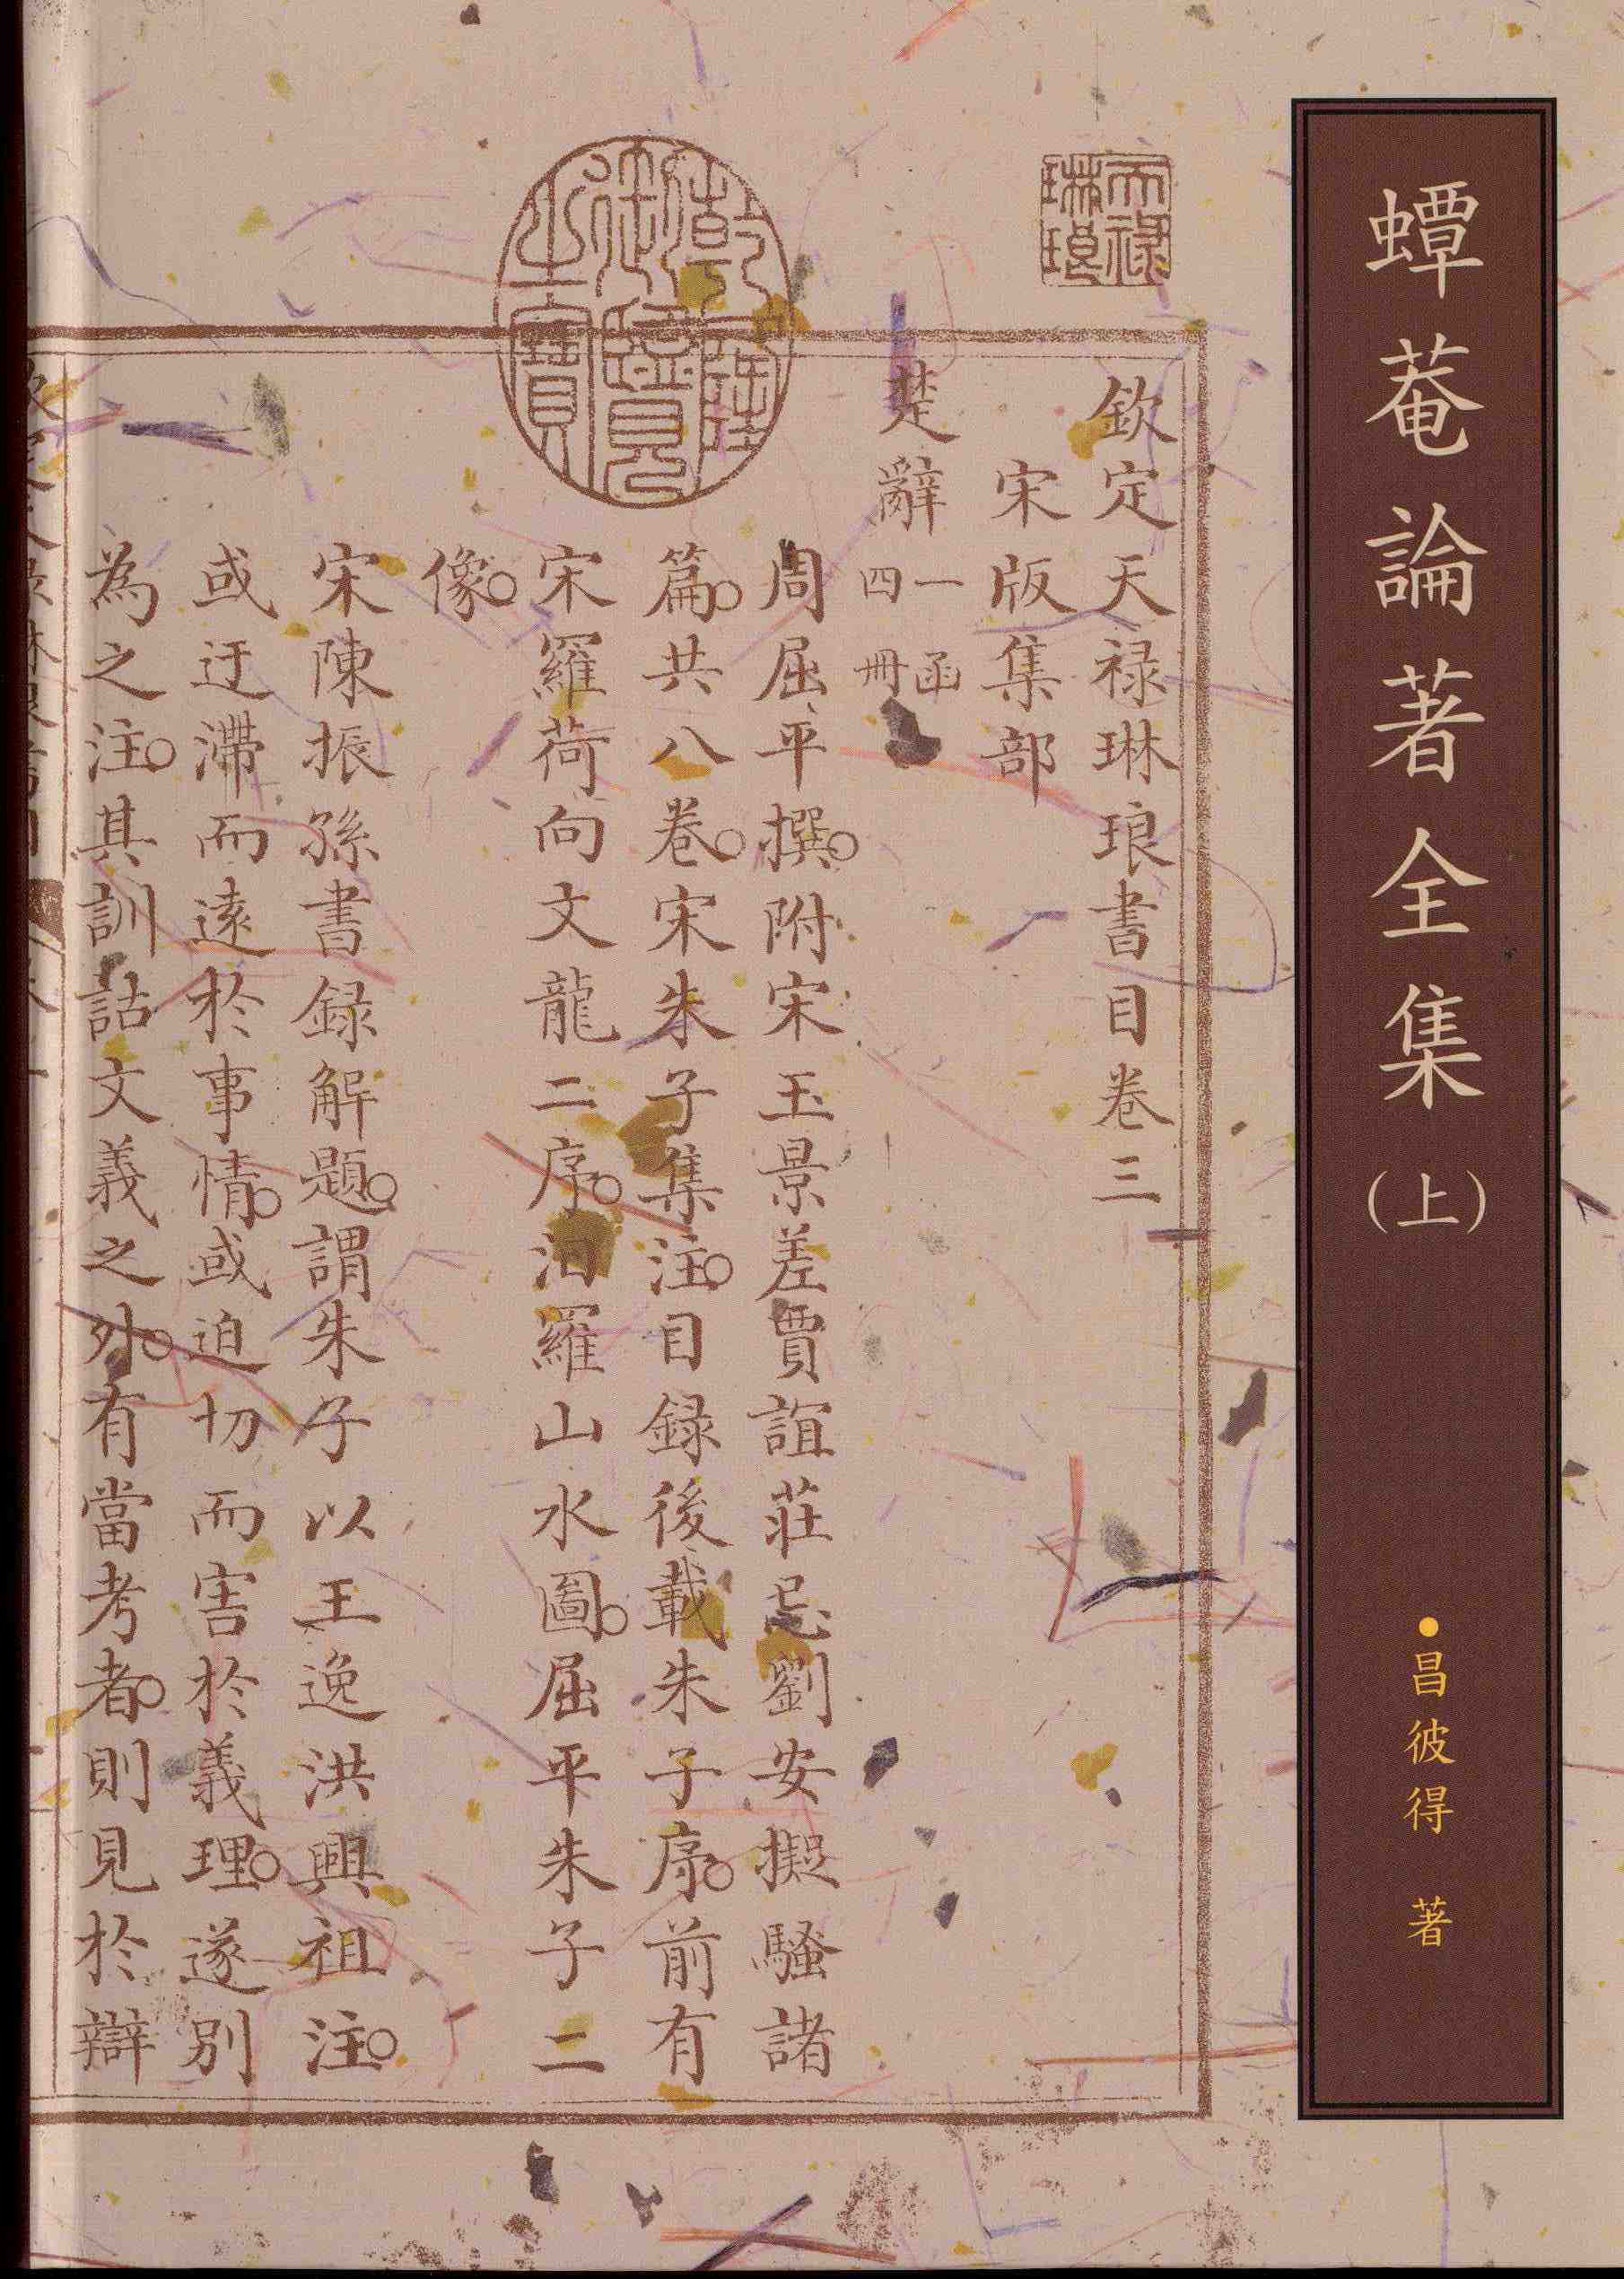 蟫菴論著全集(上)
•昌彼得 著
天祿琳琅
乾隆御覽之寶
欽定天禄琳琅書目卷三
宋版集部
楚辭 一函四冊
周屈平撰。附宋玉景差賈誼莊忌劉安擬騷諸
篇。共八卷。宋朱子集注。目録後載朱子序。前有
宋羅荷向文龍二序。汨羅山水圖。屈平朱子二
像。
宋陳振孫書録解題。謂朱子以王逸洪興祖注。
或迂滯而遠於事情。或迫切而害於義理。遂別
為之注。其訓詁文義之外。有當考者。則見於辯